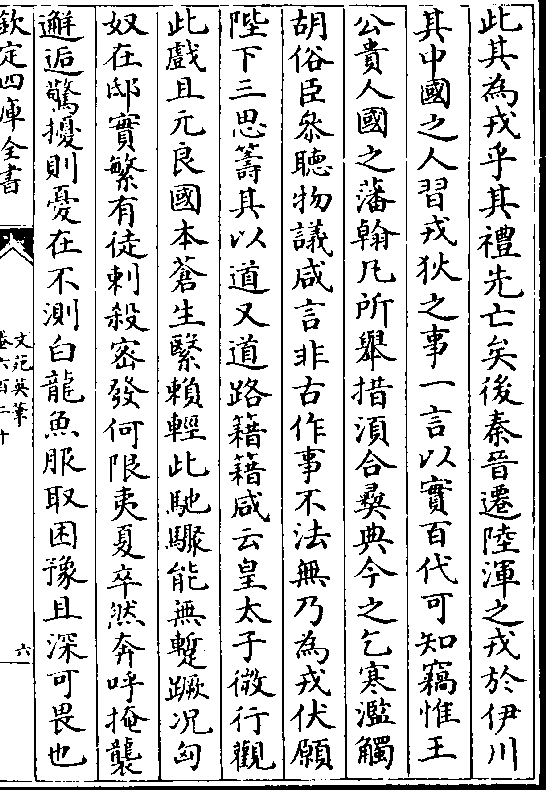 此其為戎乎其禮先亡矣後秦晉遷陸渾之戎於伊川
其中國之人習戎狄之事一言以實百代可知竊惟王
公貴人國之藩翰凡所舉措湏合彝典今之乞寒濫觴
胡俗臣叅聽物議咸言非古作事不法無乃為戎伏願
陛下三思籌其以道又道路籍籍咸云皇太子微行觀
此戲且元良國本蒼生繫賴輕此馳驟能無蹔蹶况匈
奴在邸實繁有徒刺殺密發何限夷夏卒然奔呼掩襲
邂逅驚擾則憂在不測白龍魚服取困豫且深可畏也
欽定四庫全書
文苑英華
卷六百二十
六